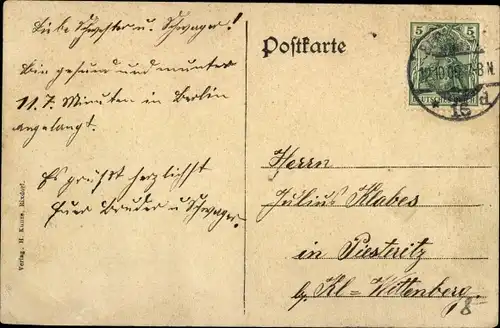 Liebe Schwester u. Schwager!
Bin gesund und munter
11.7. Minuten in Berlin
angelangt.
Es grüßt herzlichst
Euer Bruder u Schwager.
Verlag. H. Kunze, Rixdorf.
Postkarte
5 5
DEUTSCHES REICH
12.10.09.7-8N.
* 15 d
Herrn
Julius Klabes
in Piesteritz
b/ Kl=Wittenberg.
8